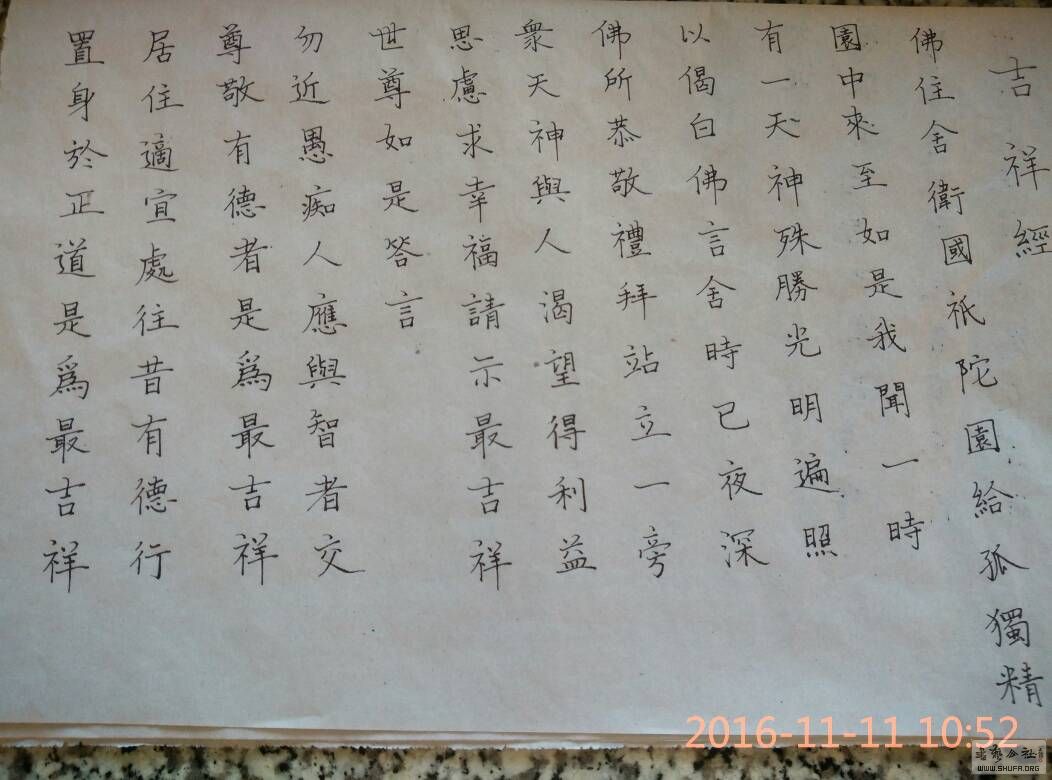 吉祥經
佛住舍衛國祇陀園給孤獨精
園中來至如是我聞一時
有一天神殊勝光明遍照
以偈白佛言舍時已夜深
佛所恭敬禮拜站立一旁
衆天神與人渴望得利益
思慮求幸福請示最吉祥
世尊如是答言
勿近愚痴人應與智者交
尊敬有德者是爲最吉祥
居住適宜處往昔有德行
置身於正道是爲最吉祥
2016-11-11 10:52
WWW.SHUFA.ORG